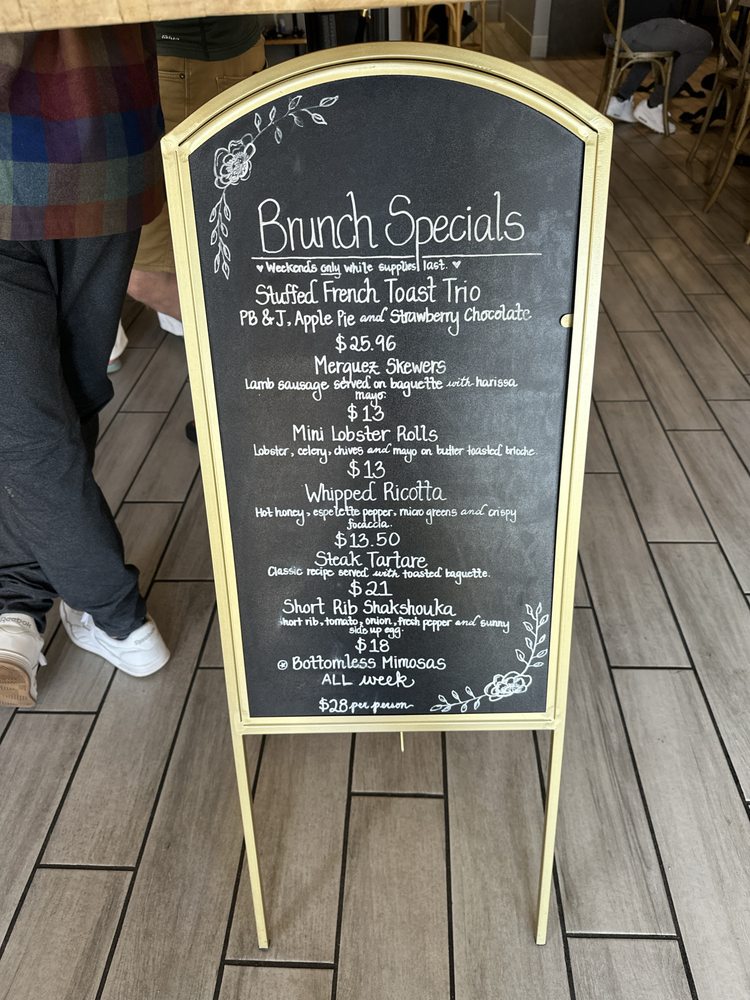 Brunch Specials
♥ Weekends only while supplies last. ♥
Stuffed French Toast Trio
PB & J, Apple Pie and Strawberry Chocolate
$25.96
Merguez Skewers
Lamb sausage served on baguette with harissa
mayo.
$13
Mini Lobster Rolls
Lobster, celery, chives and mayo on butter toasted brioche.
$13
Whipped Ricotta
Hot honey, espelette pepper, micro greens and crispy
focaccia.
$13.50
Steak Tartare
Classic recipe served with toasted baguette.
$21
Short Rib Shakshouka
Short rib, tomato, onion, fresh pepper and sunny
side up egg.
$18
Bottomless Mimosas
ALL week
$28 per person
Reebok